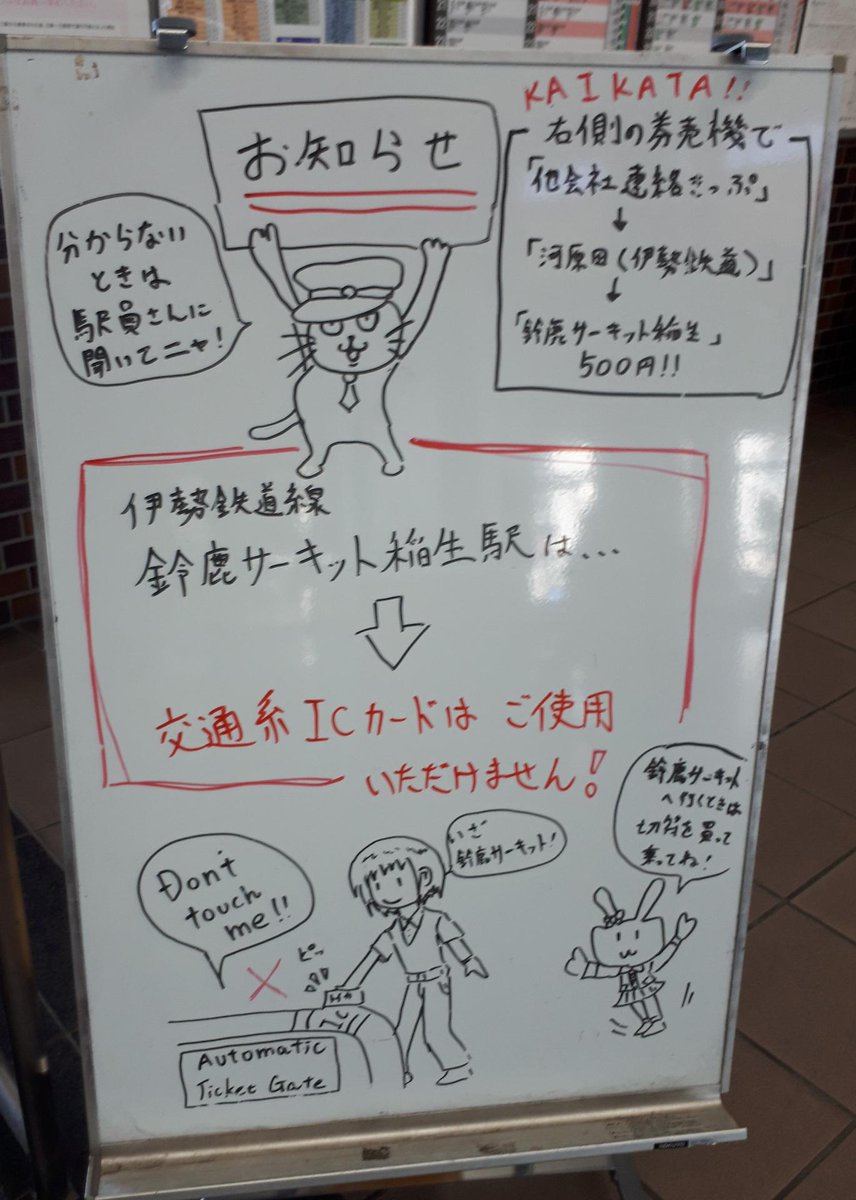 お知らせ
分からない
ときは
駅員さんに
聞いてニャ!
KAIKATA!!
右側の券売機で
「他会社連絡きっぷ」
↓
「河原田(伊勢鉄道)」
↓
「鈴鹿サーキット稲生」
500円!!
伊勢鉄道線
鈴鹿サーキット稲生駅は...
交通系ICカードは ご使用
いただけません!
Don't
touch
me!!
ピッ
いざ
鈴鹿サーキット!
鈴鹿サーキット
へ行くときは
切符を買って
乗ってね!
Automatic
Ticket Gate